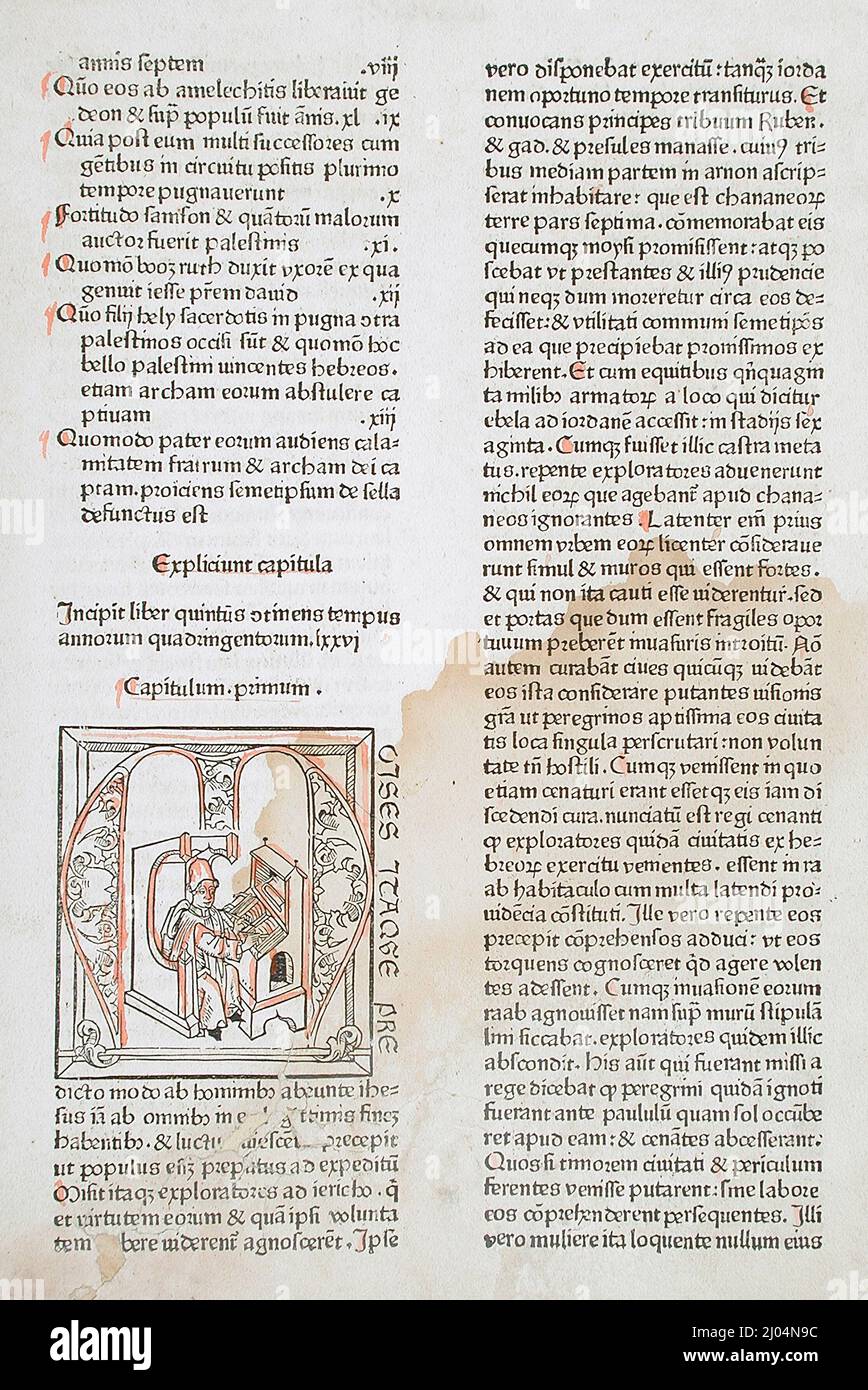 annis septem .viij
Quo eos ab amelechitis liberauit ge
deon & sup̄ populū fuit ānis. xl .ix
Quia post eum multi successores cum
gētibus in circuitu positis plurimo
tempore pugnauerunt .x
Fortitudo samson & quātorū malorum
auctor fuerit palestinis .xi.
Quomō booz ruth duxit vxorē ex qua
genuit iesse p̄rem dauid .xij
Quō filij hely sacerdotis in pugna ɔtra
palestinos occisi sūt & quomō hoc
bello palestini uincentes hebreos.
etiam archam eorum abstulere ca
ptiuam .xiij
Quomodo pater eorum audiens cala-
mitatem fratrum & archam dei ca
ptam. proiciens semetipsum de sella
defunctus est
Expliciunt capitula
Incipit liber quintus ɔtinens tempus
annorum quadringentorum. lxxvi
Capitulum. primum.
MOISES ITAQVE PRE
dicto modo ab hominibꝫ abeunte ihe-
sus iā ab omnibꝫ in finē
habentibꝫ. & luctu precepit
ut populus eiꝫ preparatus ad expeditū
Misit itaqꝫ exploratores ad iericho. q̄
et virtutem eorum & quā ipsi volunta
tem bere uiderent̄ agnoscerēt. Ipse
vero disponebat exercitū: tanqꝫ iorda
nem oportuno tempore transiturus. Et
conuocans principes tribuum Ruben.
& gad. & presules manasse. cuiꝰ tri-
bus mediam partem in arnon ascrip-
serat inhabitare: que est chananeoꝝ
terre pars septima. cōmemorabat eis
quecumqꝫ moysi promisissent: atqꝫ po
scebat vt prestantes & illiꝰ prudencie
qui neqꝫ dum moreretur circa eos de-
fecisset: & vtilitati communi semetipōs
ad ea que precipiebat promissimos ex
hiberent. Et cum equitibus qn̄quagin
ta milibꝫ armatoꝝ a loco qui dicitur
ebela ad iordanē accessit: in stadijs sex
aginta. Cumqꝫ fuisset illic castra meta
tus. repente exploratores aduenerunt
nichil eoꝝ que agebant̄ apud chana-
neos ignorantes. Latenter em̄ prius
omnem vrbem eoꝝ licenter cōsideraue
runt simul & muros qui essent fortes.
& qui non ita cauti esse uiderentur̄. sed
et portas que dum essent fragiles opor
tuuum preberēt inuasuris introitū. Nō
autem curabāt ciues quicūqꝫ uidebāt
eos ista considerare putantes uisionis
gr̄a ut peregrinos aptissima eos ciuita
tis loca singula perscrutari: non volun
tate tn̄ hostili. Cumqꝫ venissent in quo
etiam cenaturi erant essetqꝫ eis iam di
scedendi cura. nunciatū est regi cenanti
qꝑ exploratores quidā ciuitatis ex he-
breoꝝ exercitu uenientes. essent in ra
ab habitaculo cum multa latendi pro-
uidēcia cōstituti. Ille vero repente eos
precepit cōprehensos adduci: vt eos
torquens cognosceret qd̄ agere volen
tes adessent. Cumqꝫ inuasionem eorum
raab agnouisset nam sup̄ murū stipulā
lini siccabat. exploratores quidem illic
abscondit. His aūt qui fuerant missi a
rege dicebat qꝑ peregrini quidā ignoti
fuerant ante paululū quam sol occūbe
ret apud eam: & cenātes abcesserant:
Quos si timorem ciuitati & periculum
ferentes venisse putarent: sine labore
eos cōprehenderent persequentes. Illi
vero muliere ita loquente nullum eius